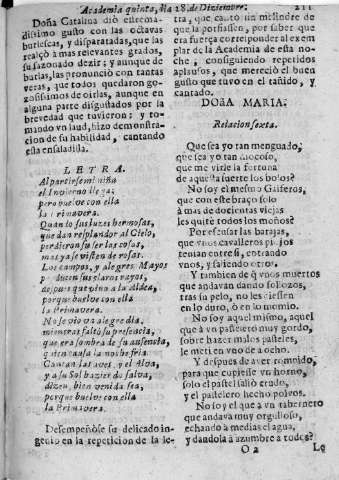 Academia quinta, dia 28. de Diziembre. 211
Doña Catalina diò estremadissimo
gusto con las octavas
burlescas, y disparatadas, que las
realçò a mas relevantes grados,
su sazonado dezir; y aunque de
burlas, las pronunciò con tantas
veras, que todos quedaron gozosissimos
de oirlas, aunque en
alguna parte disgustados por la
brevedad que tuvieron; y tomando
vn laud, hizo demonstracion
de su habilidad, cantando
esta ensaladilla.
LETRA.
Al partirse mi niña
el Invierno llega;
pero buelve con ella
la Primavera.
Quando sus luzes hermosas,
que dan resplandor al Cielo,
perdieron su ser las rosas,
mas ya se visten de rosas.
Los campos, y alegres Mayos
sus rayos,
despues que vino a la Aldea,
porque buelve con ella
la Primavera.
No se viò vn alegre dia,
mientras faltò su presencia,
que era sombra de su ausencia,
la noche fria.
Cantan las aves, y el Alva,
y a su Sol hazen la salva,
dizen, bien venida sea,
porque buelve con ella
la Primavera.
Desempeñòse su delicado ingenio
en la repeticion de la letra,
que cantò vn
que la porfiassen, por saber que
era fuerça corresponder al exemplar
de la Academia de esta noche,
consiguiendo repetidos
aplausos, que mereciò el buen
gusto que tuvo en el tañido, y
cantado.
DOñA MARIA.
Relacion sexta.
Que sea yo tan menguado,
que sea yo tan mocoso,
que me virle la fortuna
de aquesta suerte los bolos?
No soy el mesmo Gaiferos,
que con este braço solo
à mas de docientas viejas
les quitè todos los moños?
Por escusar las barajas,
que vnos cavalleros
tenian entre sì, entrando
vnos, y saliendo otros.
Y tambien de que vnos muertos
que andavan dando sollozos,
tras su pelo, no les diessen
en lo duro, ò en lo momio.
No soy aquel mismo, aquel
que à vn pastelero muy gordo,
sobre hazer malos pasteles,
le meti en vno de a ocho.
Y despues de aver comido,
para que cupiesse vn horno,
solo el pastel saliò crudo,
y el pastelero hecho polvos.
No soy el que à vn tabernero
que andava muy orgulloso,
echando à medias el agua,
y dandola à azumbre a todos?
O 2 Le